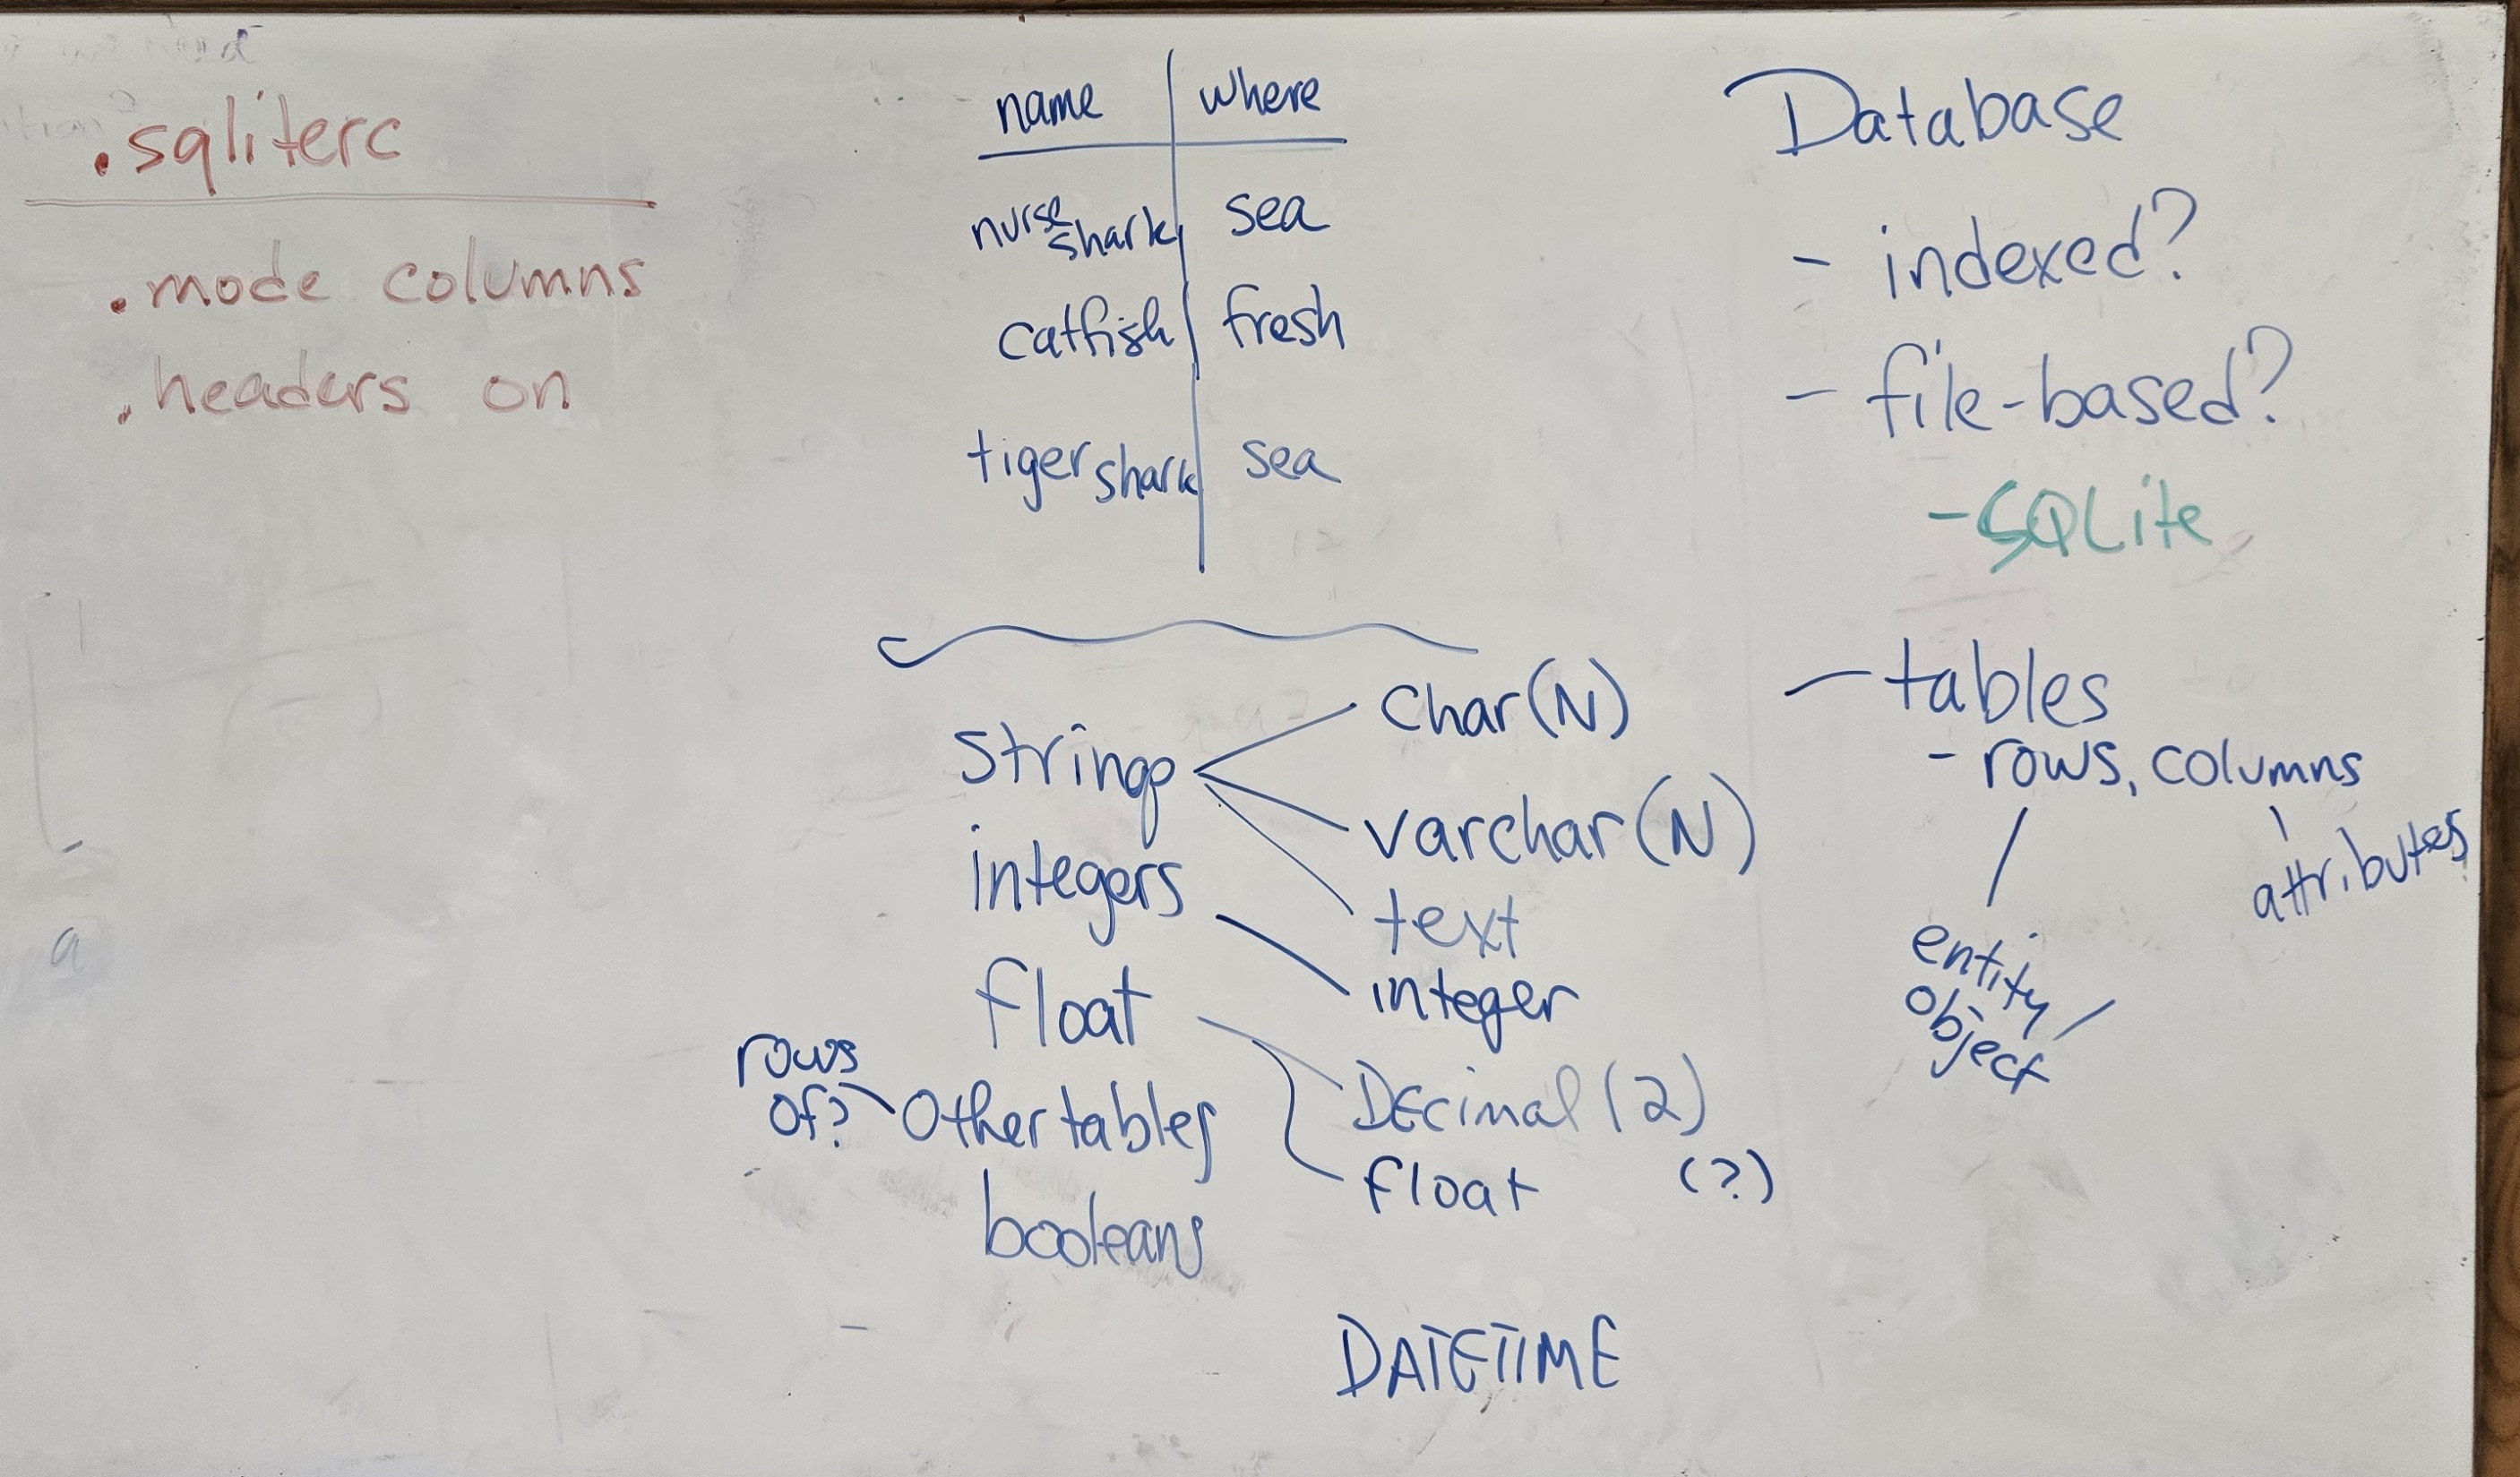 .sqliterc
.mode columns
.headers on
name where
nurse shark sea
catfish fresh
tiger shark sea
Strings
integers
float
rows
of?
Other tables
booleans
Char(N)
varchar(N)
text
integer
DEcimal(2)
float (?)
DATETIME
Database
- indexed?
- file-based?
- SQLite
- tables
- rows, columns
attributes
entity/
object